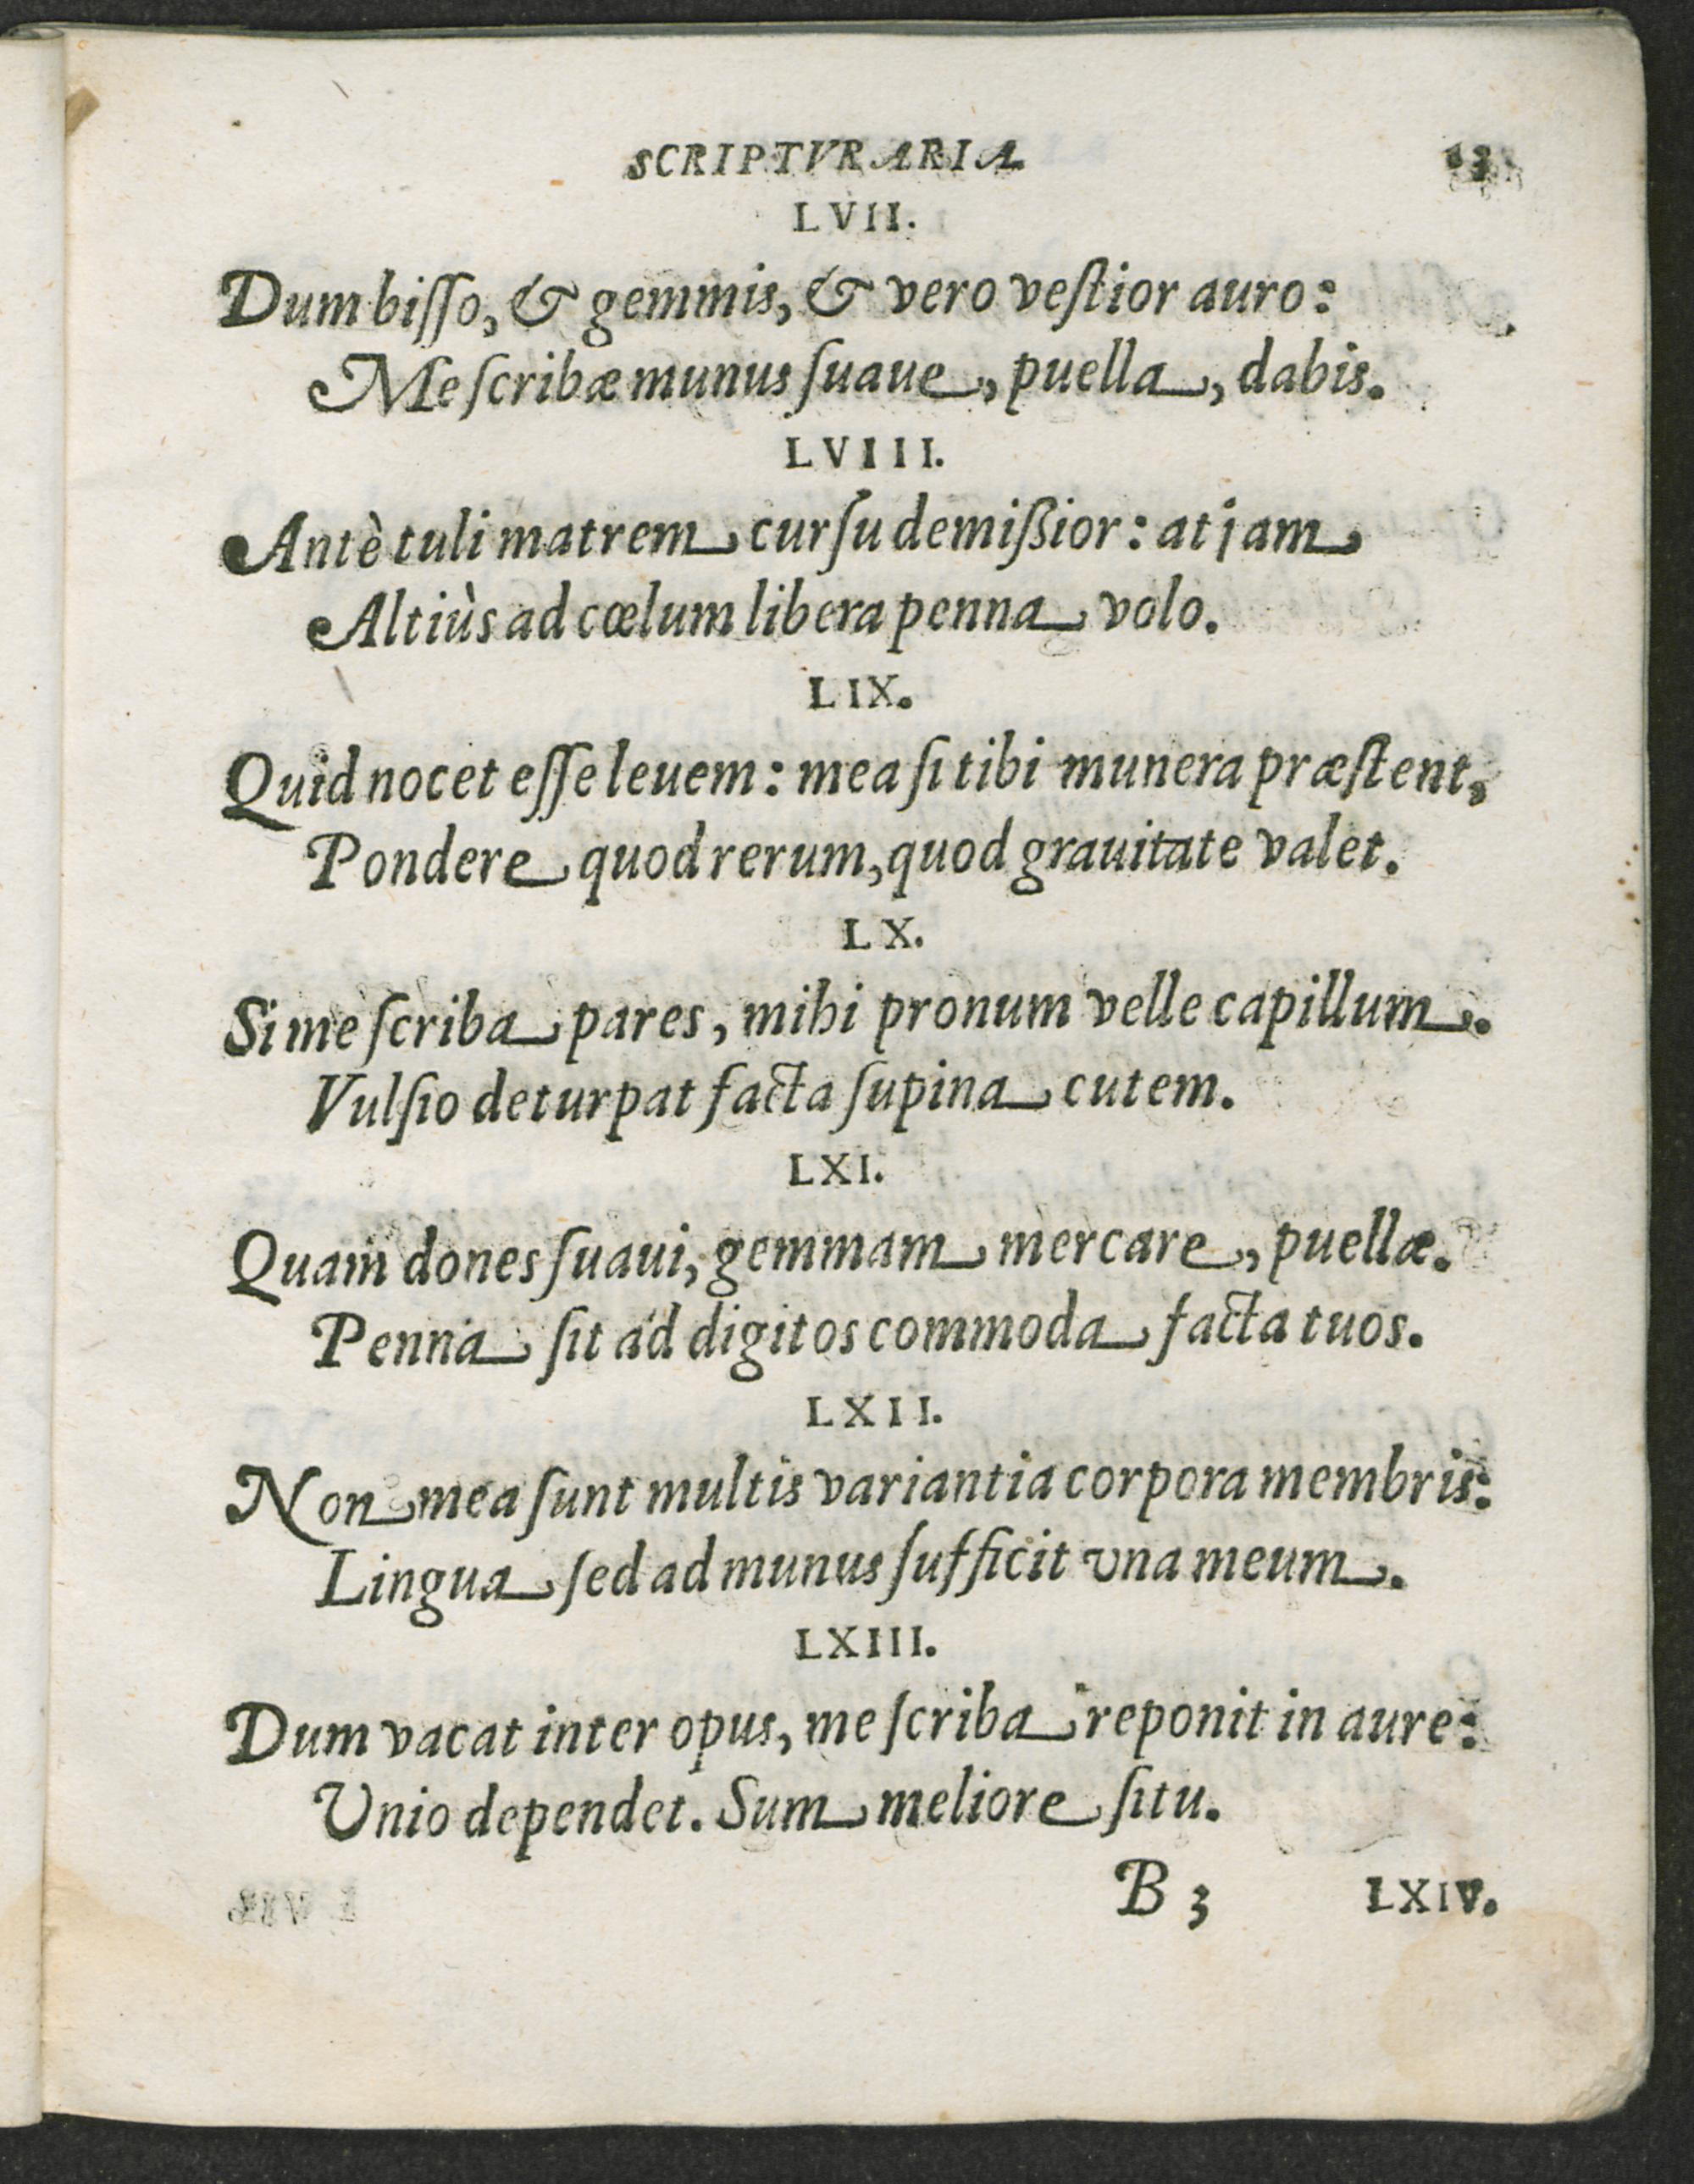 SCRIPTVRARIA
LVII.
Dum bisso, & gemmis, & vero vestior auro:
Me scribæ munus suaue, puella, dabis.
LVIII.
Antè tuli matrem cursu demißior: at jam
Altiùs ad cœlum libera penna volo.
LIX.
Quid nocet esse leuem: mea si tibi munera præstent,
Pondere quod rerum, quod grauitate valet.
LX.
Si me scriba pares, mihi pronum velle capillum.
Vulsio deturpat facta supina cutem.
LXI.
Quam dones suaui, gemmam mercare, puellæ.
Penna sit ad digitos commoda facta tuos.
LXII.
Non mea sunt multis variantia corpora membris:
Lingua sed ad munus sufficit vna meum.
LXIII.
Dum vacat inter opus, me scriba reponit in aure:
Unio dependet. Sum meliore situ.
B 3 LXIV.